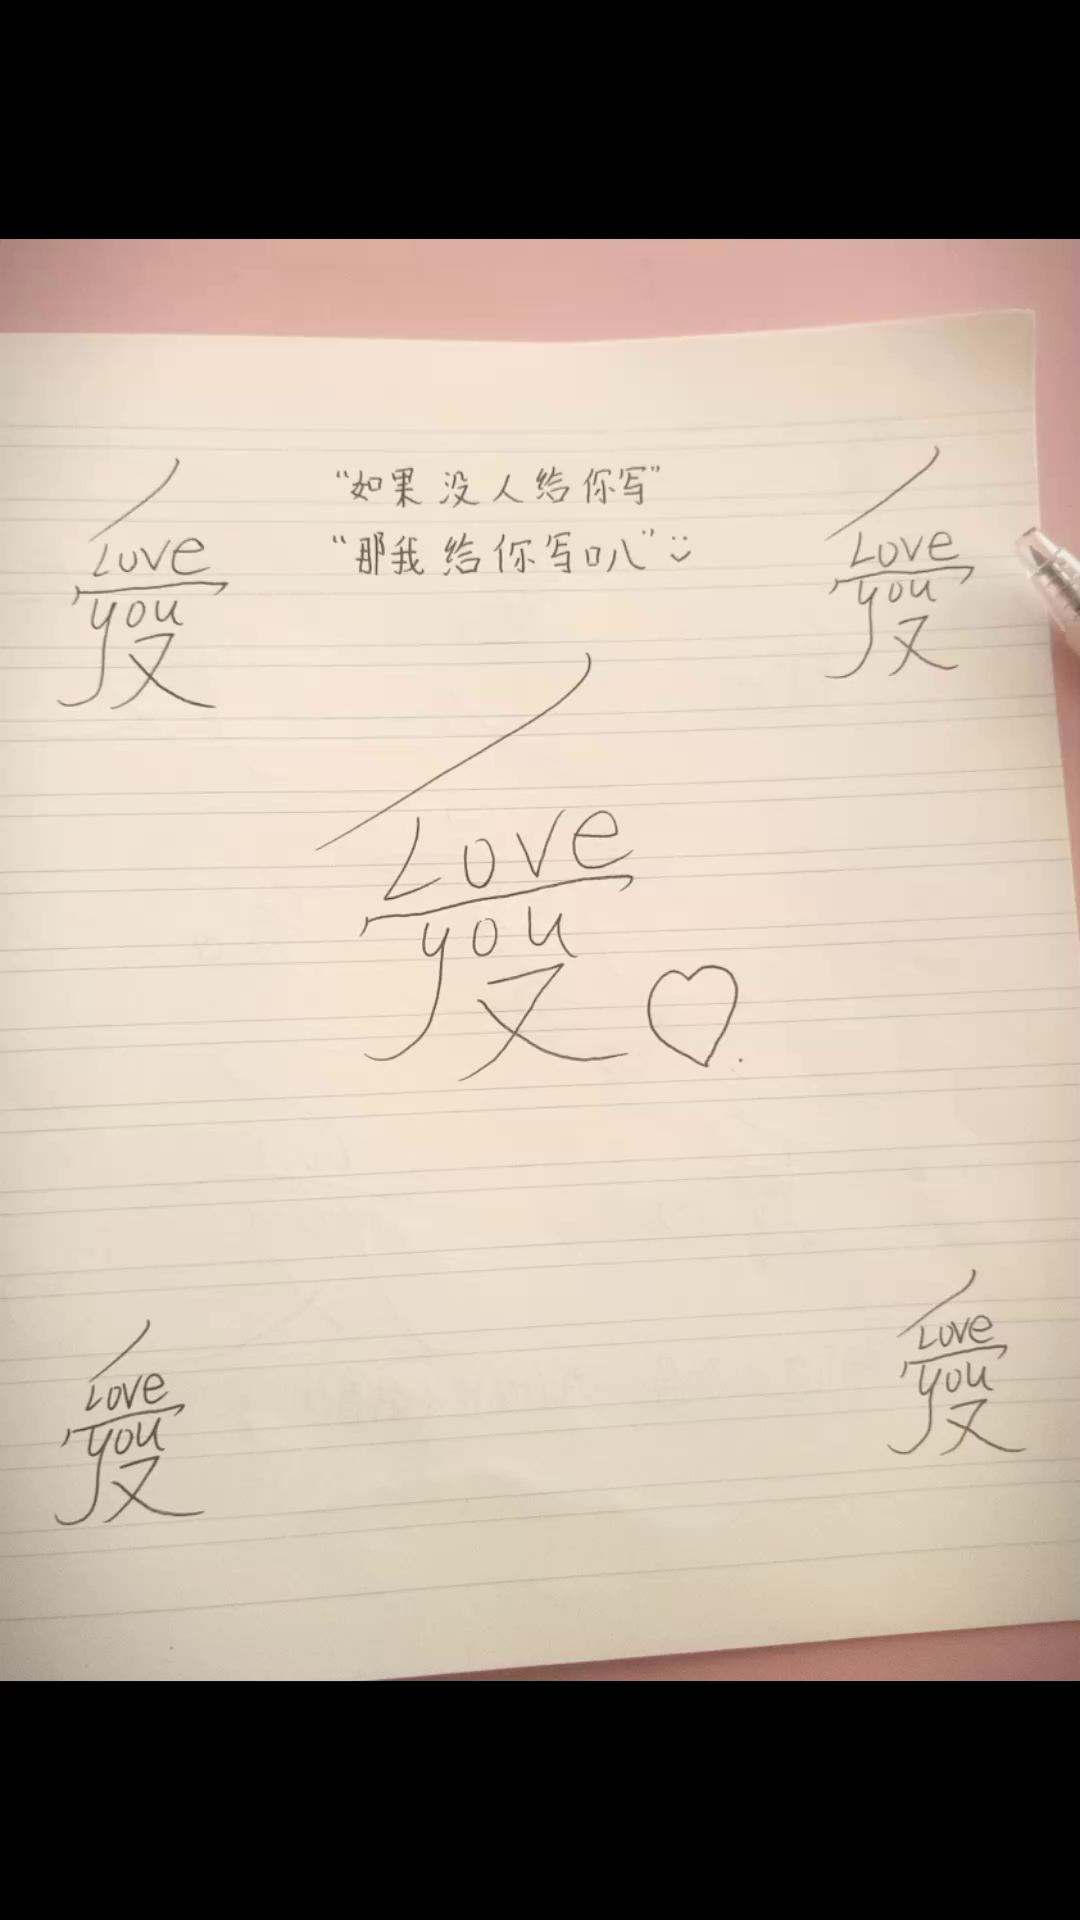 “如果没人给你写”
“那我给你写叭”
Love
you
又
Love
you
又
Love
you
又
Love
you
又
Love
you
又